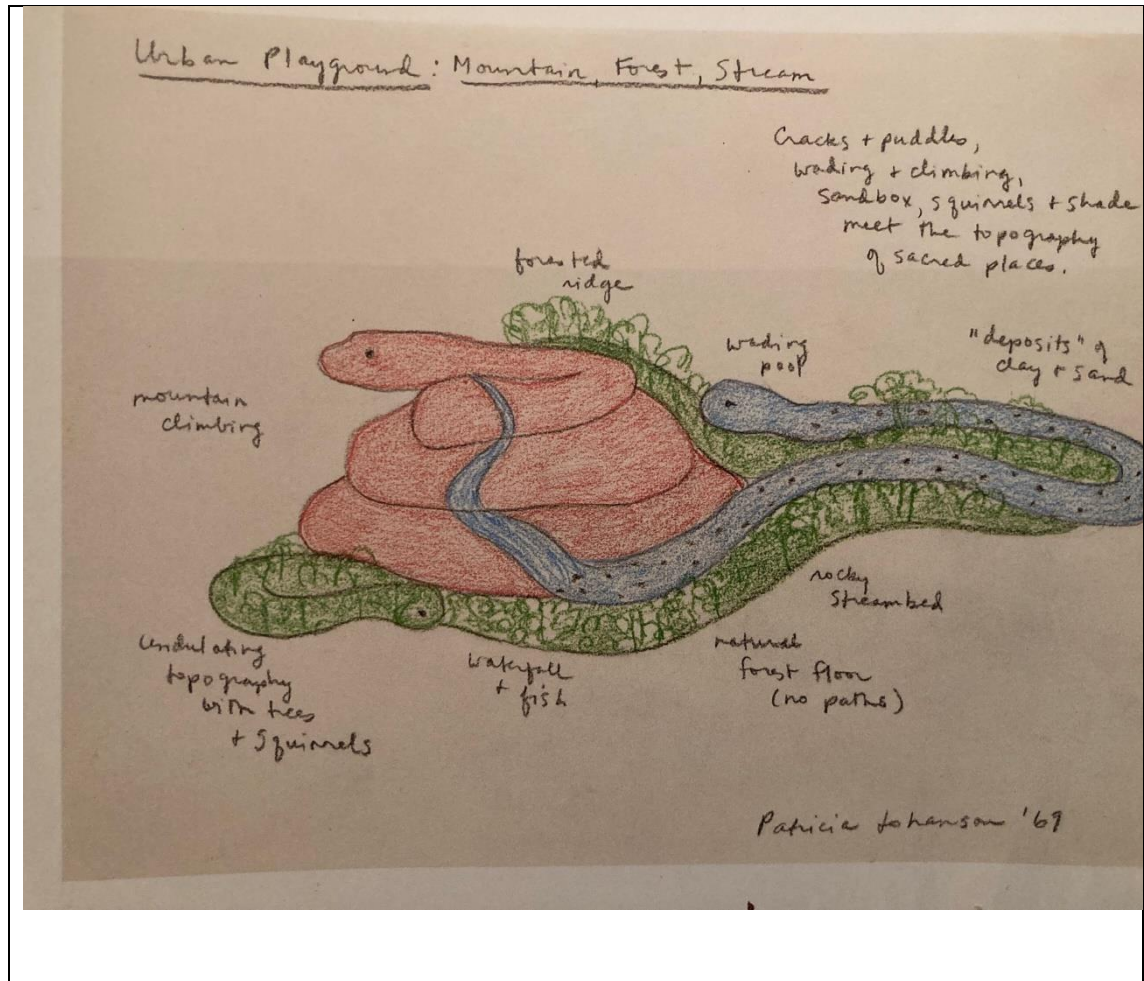 Urban Playground: Mountain, Forest, Stream
Cracks + puddles,
wading + climbing,
sandbox, squirrels + shade
meet the topography
of sacred places.
forested
ridge
wading
pool
"deposits" of
clay + sand
mountain
climbing
rocky
streambed
undulating
topography
with trees
+ squirrels
waterfall
+ fish
natural
forest floor
(no paths)
Patricia Johanson '69